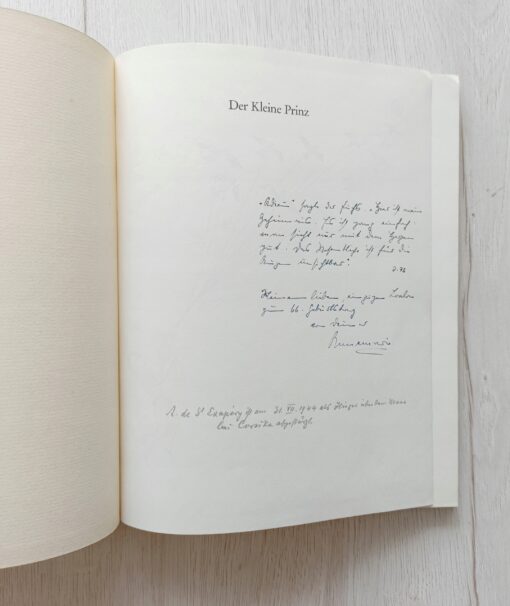 Der Kleine Prinz
„Adieu“ sagte der Fuchs. „Hier ist mein
Geheimnis. Es ist ganz einfach:
man sieht nur mit dem Herzen
gut. Das Wesentliche ist für die
Augen unsichtbar.“
Meinem lieben, einzigen
zum 66. Geburtstag
von Deiner
A. de St Exupéry ist am 31. VII. 1944 als Flieger über dem Meer
bei Corsika abgestürzt